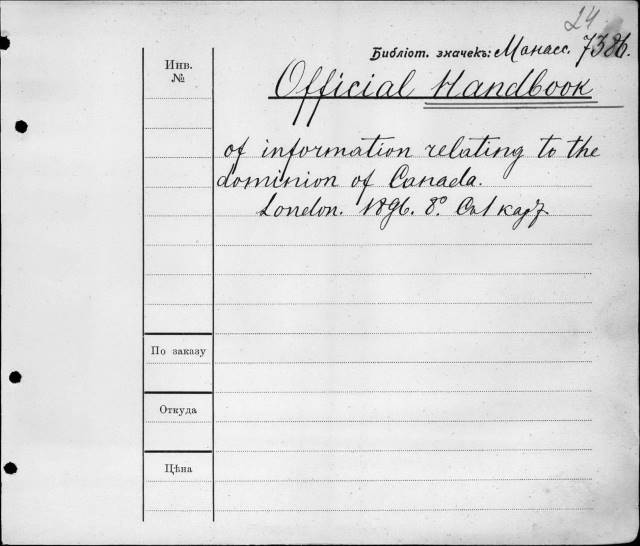 24
Библіот. значекъ: Манасс. 7386.
Инв.
№
Official Handbook
of information relating to the
dominion of Canada.
London. 1896. 8°. Съ 1 кар
По заказу
Откуда
Цѣна